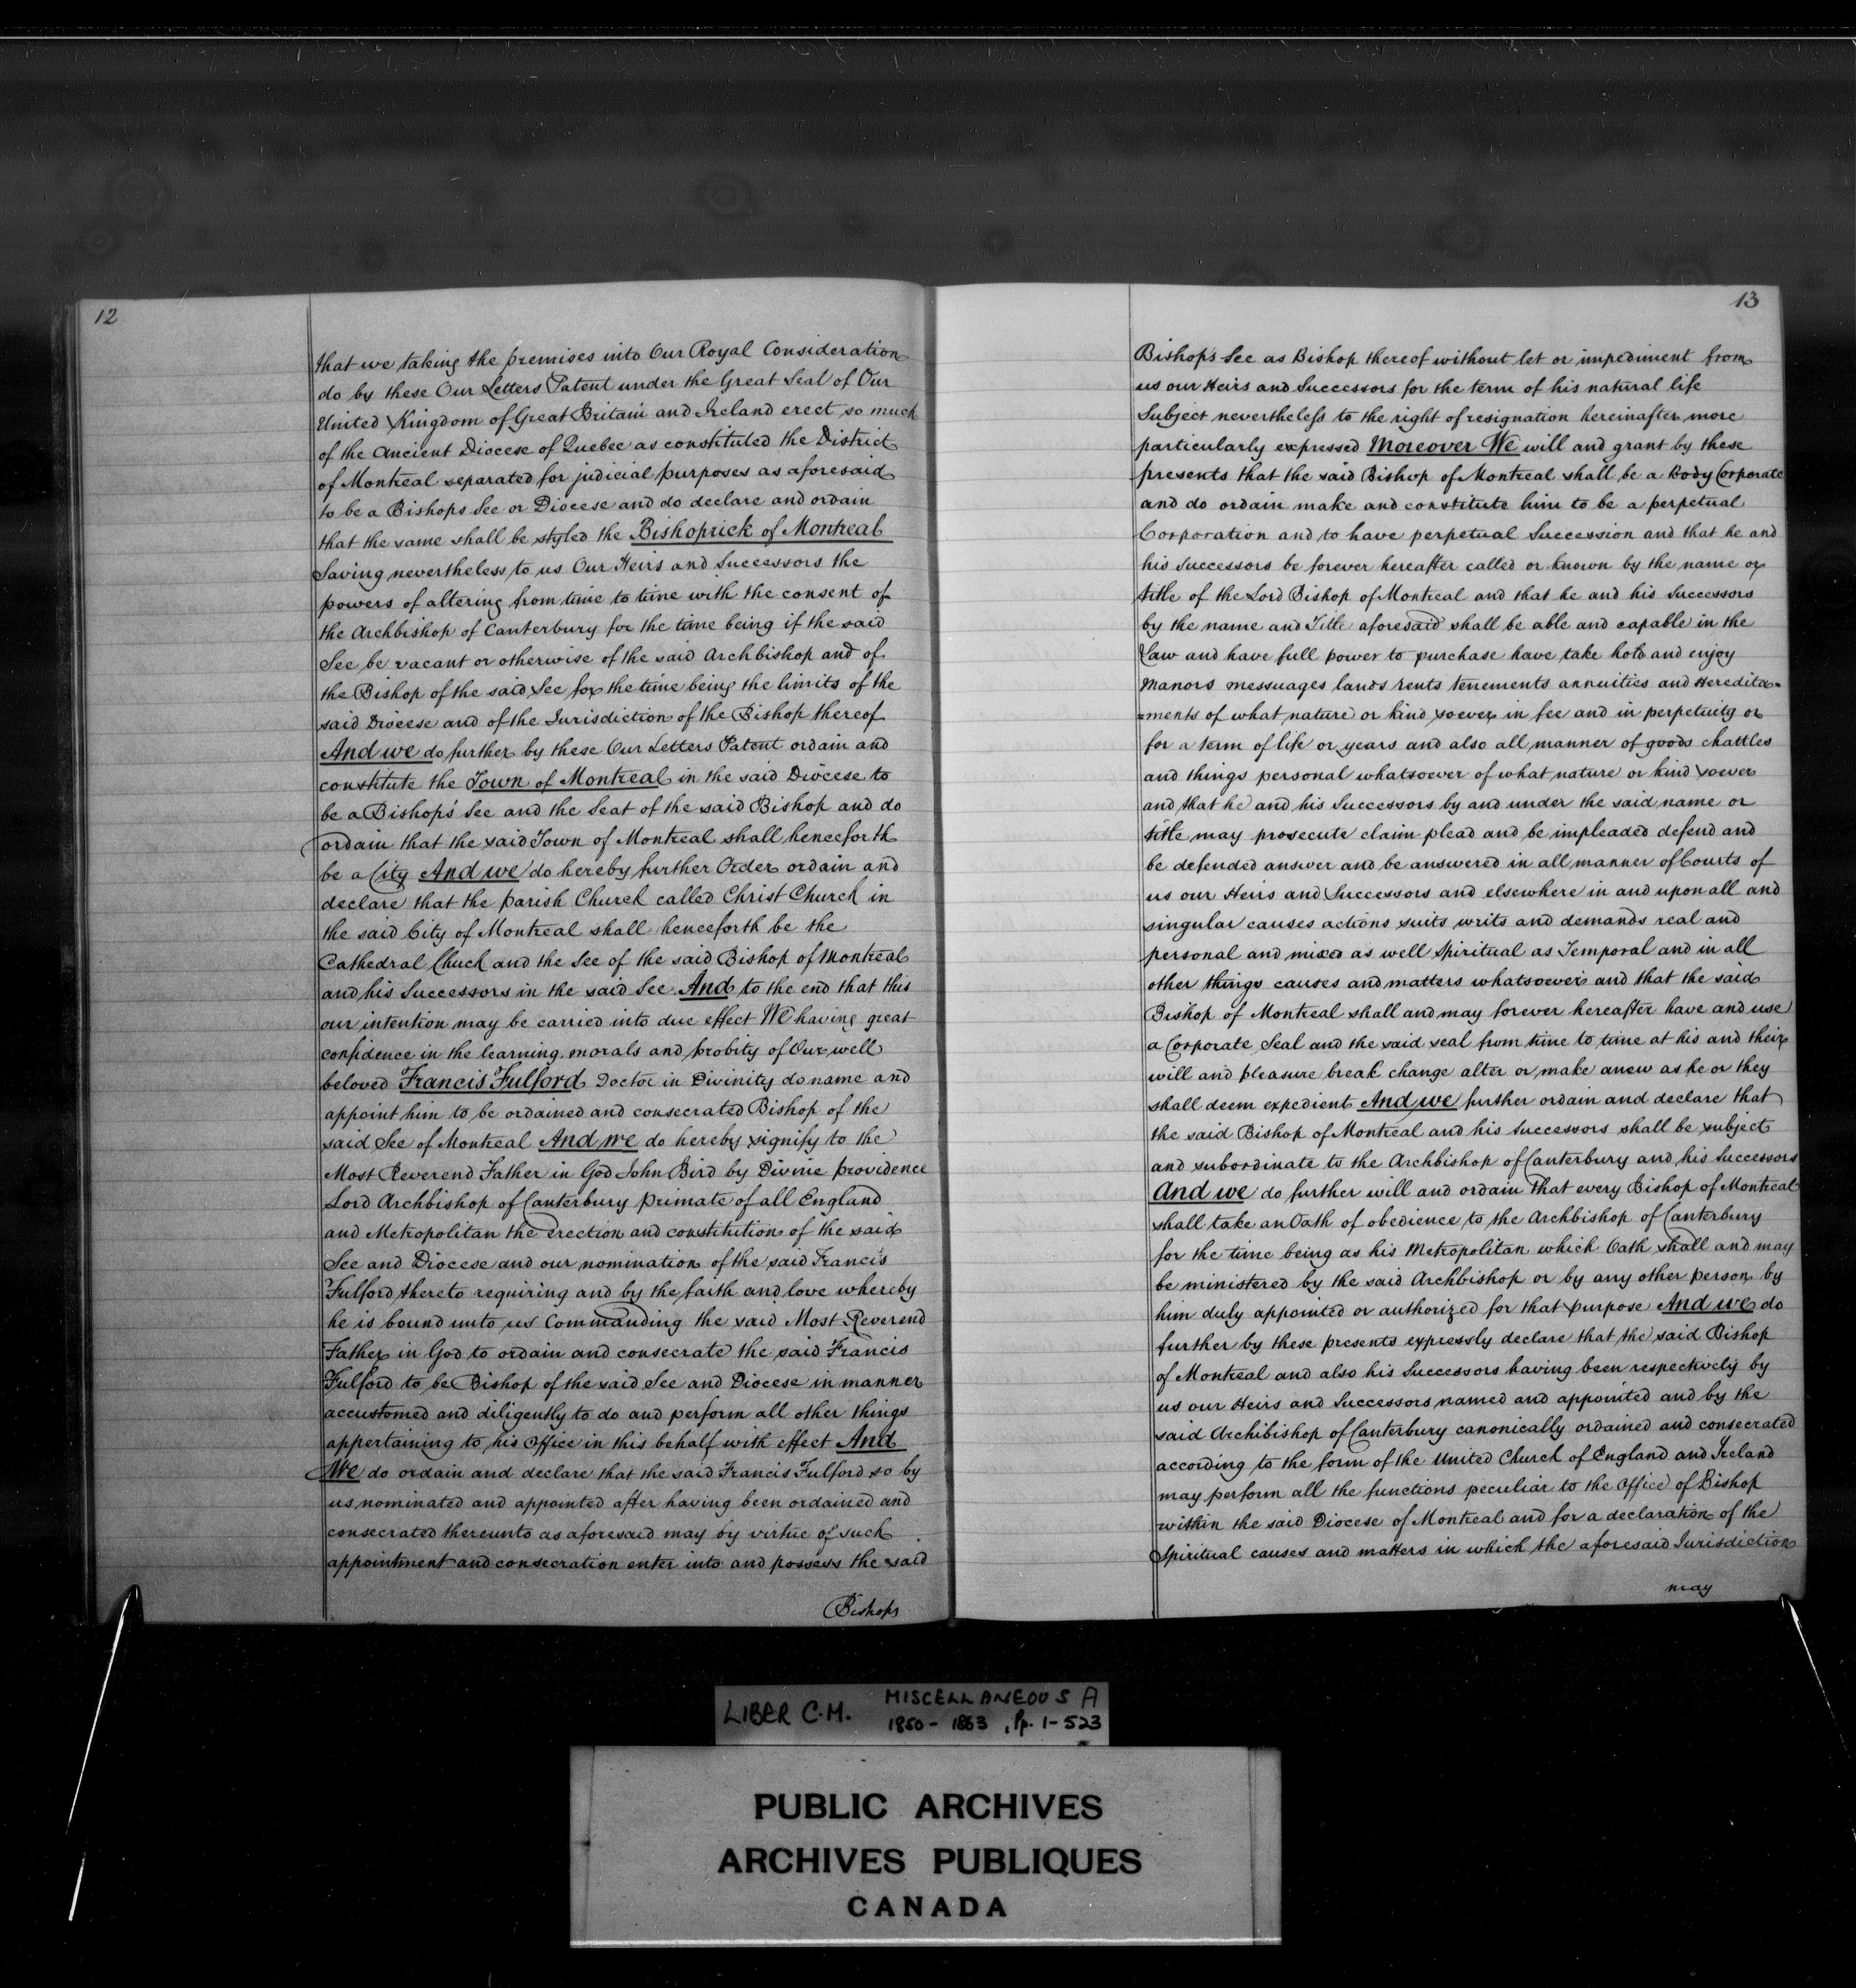 12
that we taking the premises into Our Royal Consideration
do by these Our Letters Patent under the Great Seal of Our
United Kingdom of Great Britain and Ireland erect so much
of the Ancient Diocese of Quebec as constituted the District
of Montreal separated for judicial purposes as aforesaid
to be a Bishops See or Diocese and do declare and ordain
that the same shall be styled the Bishoprick of Montreal
Saving nevertheless to us Our Heirs and Successors the
powers of altering from time to time with the consent of
the Archbishop of Canterbury for the time being if the said
See be vacant or otherwise of the said Archbishop and of
the Bishop of the said See for the time being the limits of the
said Diocese and of the Jurisdiction of the Bishop thereof
And we do further by these Our Letters Patent ordain and
constitute the Town of Montreal in the said Diocese to
be a Bishops' See and the Seat of the said Bishop and do
ordain that the said Town of Montreal shall henceforth
be a City And we do hereby further Order ordain and
declare that the parish Church called Christ Church in
the said City of Montreal shall henceforth be the
Cathedral Chuch and the See of the said Bishop of Montreal
and his Successors in the said See And to the end that this
our intention may be carried into due effect We having great
confidence in the learning morals and probity of Our well
beloved Francis Fulford Doctor in Divinity do name and
appoint him to be ordained and consecrated Bishop of the
said See of Montreal And we do hereby signify to the
Most Reverend Father in God John Bird by Divine providence
Lord Archbishop of Canterbury primate of all England
and Metropolitan the erection and constitution of the said
See and Diocese and our nomination of the said Francis
Fulford thereto requiring and by the faith and love whereby
he is bound unto us Commanding the said Most Reverend
Father in God to ordain and consecrate the said Francis
Fulford to be Bishop of the said See and Diocese in manner
accustomed and diligently to do and perform all other things
appertaining to his office in this behalf with effect And
We do ordain and declare that the said Francis Fulford so by
us nominated and appointed after having been ordained and
consecrated thereunto as aforesaid may by virtue of such
appointment and consecration enter into and possess the said
Bishops
13
Bishops See as Bishop thereof without let or impediment from
us our Heirs and Successors for the term of his natural life
Subject nevertheless to the right of resignation hereinafter more
particularly expressed Moreover We will and grant by these
presents that the said Bishop of Montreal shall be a Body Corporate
and do ordain make and constitute him to be a perpetual
Corporation and to have perpetual Succession and that he and
his Successors be forever hereafter called or known by the name or
title of the Lord Bishop of Montreal and that he and his Successors
by the name and Title aforesaid shall be able and capable in the
Law and have full power to purchase have take hold and enjoy
Manors messuages lands rents tenements annuities and Heredita=
=ments of what nature or kind soever in fee and in perpetuity or
for a term of life or years and also all manner of goods chattles
and things personal whatsoever of what nature or kind soever
and that he and his Successors by and under the said name or
title may prosecute claim plead and be impleaded defend and
be defended answer and be answered in all manner of Courts of
us our Heirs and Successors and elsewhere in and upon all and
singular causes actions suits writs and demands real and
personal and mixed as well Spiritual as Temporal and in all
other things causes and matters whatsoever and that the said
Bishop of Montreal shall and may forever hereafter have and use
a Corporate Seal and the said seal from time to time at his and their
will and pleasure break change alter or make anew as he or they
shall deem expedient And we further ordain and declare that
the said Bishop of Montreal and his Successors shall be subject
and subordinate to the Archbishop of Canterbury and his Successors
And we do further will and ordain that every Bishop of Montreal
shall take an Oath of obedience to the Archbishop of Canterbury
for the time being as his Metropolitan which Oath shall and may
be ministered by the said Archbishop or by any other person by
him duly appointed or authorized for that purpose And we do
further by these presents expressly declare that the said Bishop
of Montreal and also his Successors having been respectively by
us our Heirs and Successors named and appointed and by the
said Archibishop of Canterbury canonically ordained and consecrated
according to the form of the United Church of England and Ireland
may perform all the functions peculiar to the office of Bishop
within the said Diocese of Montreal and for a declaration of the
Spiritual causes and matters in which the aforesaid Jurisdiction
may
LIBER C.M. MISCELLANEOUS A
1850-1863, Pp. 1-523
PUBLIC ARCHIVES
ARCHIVES PUBLIQUES
CANADA